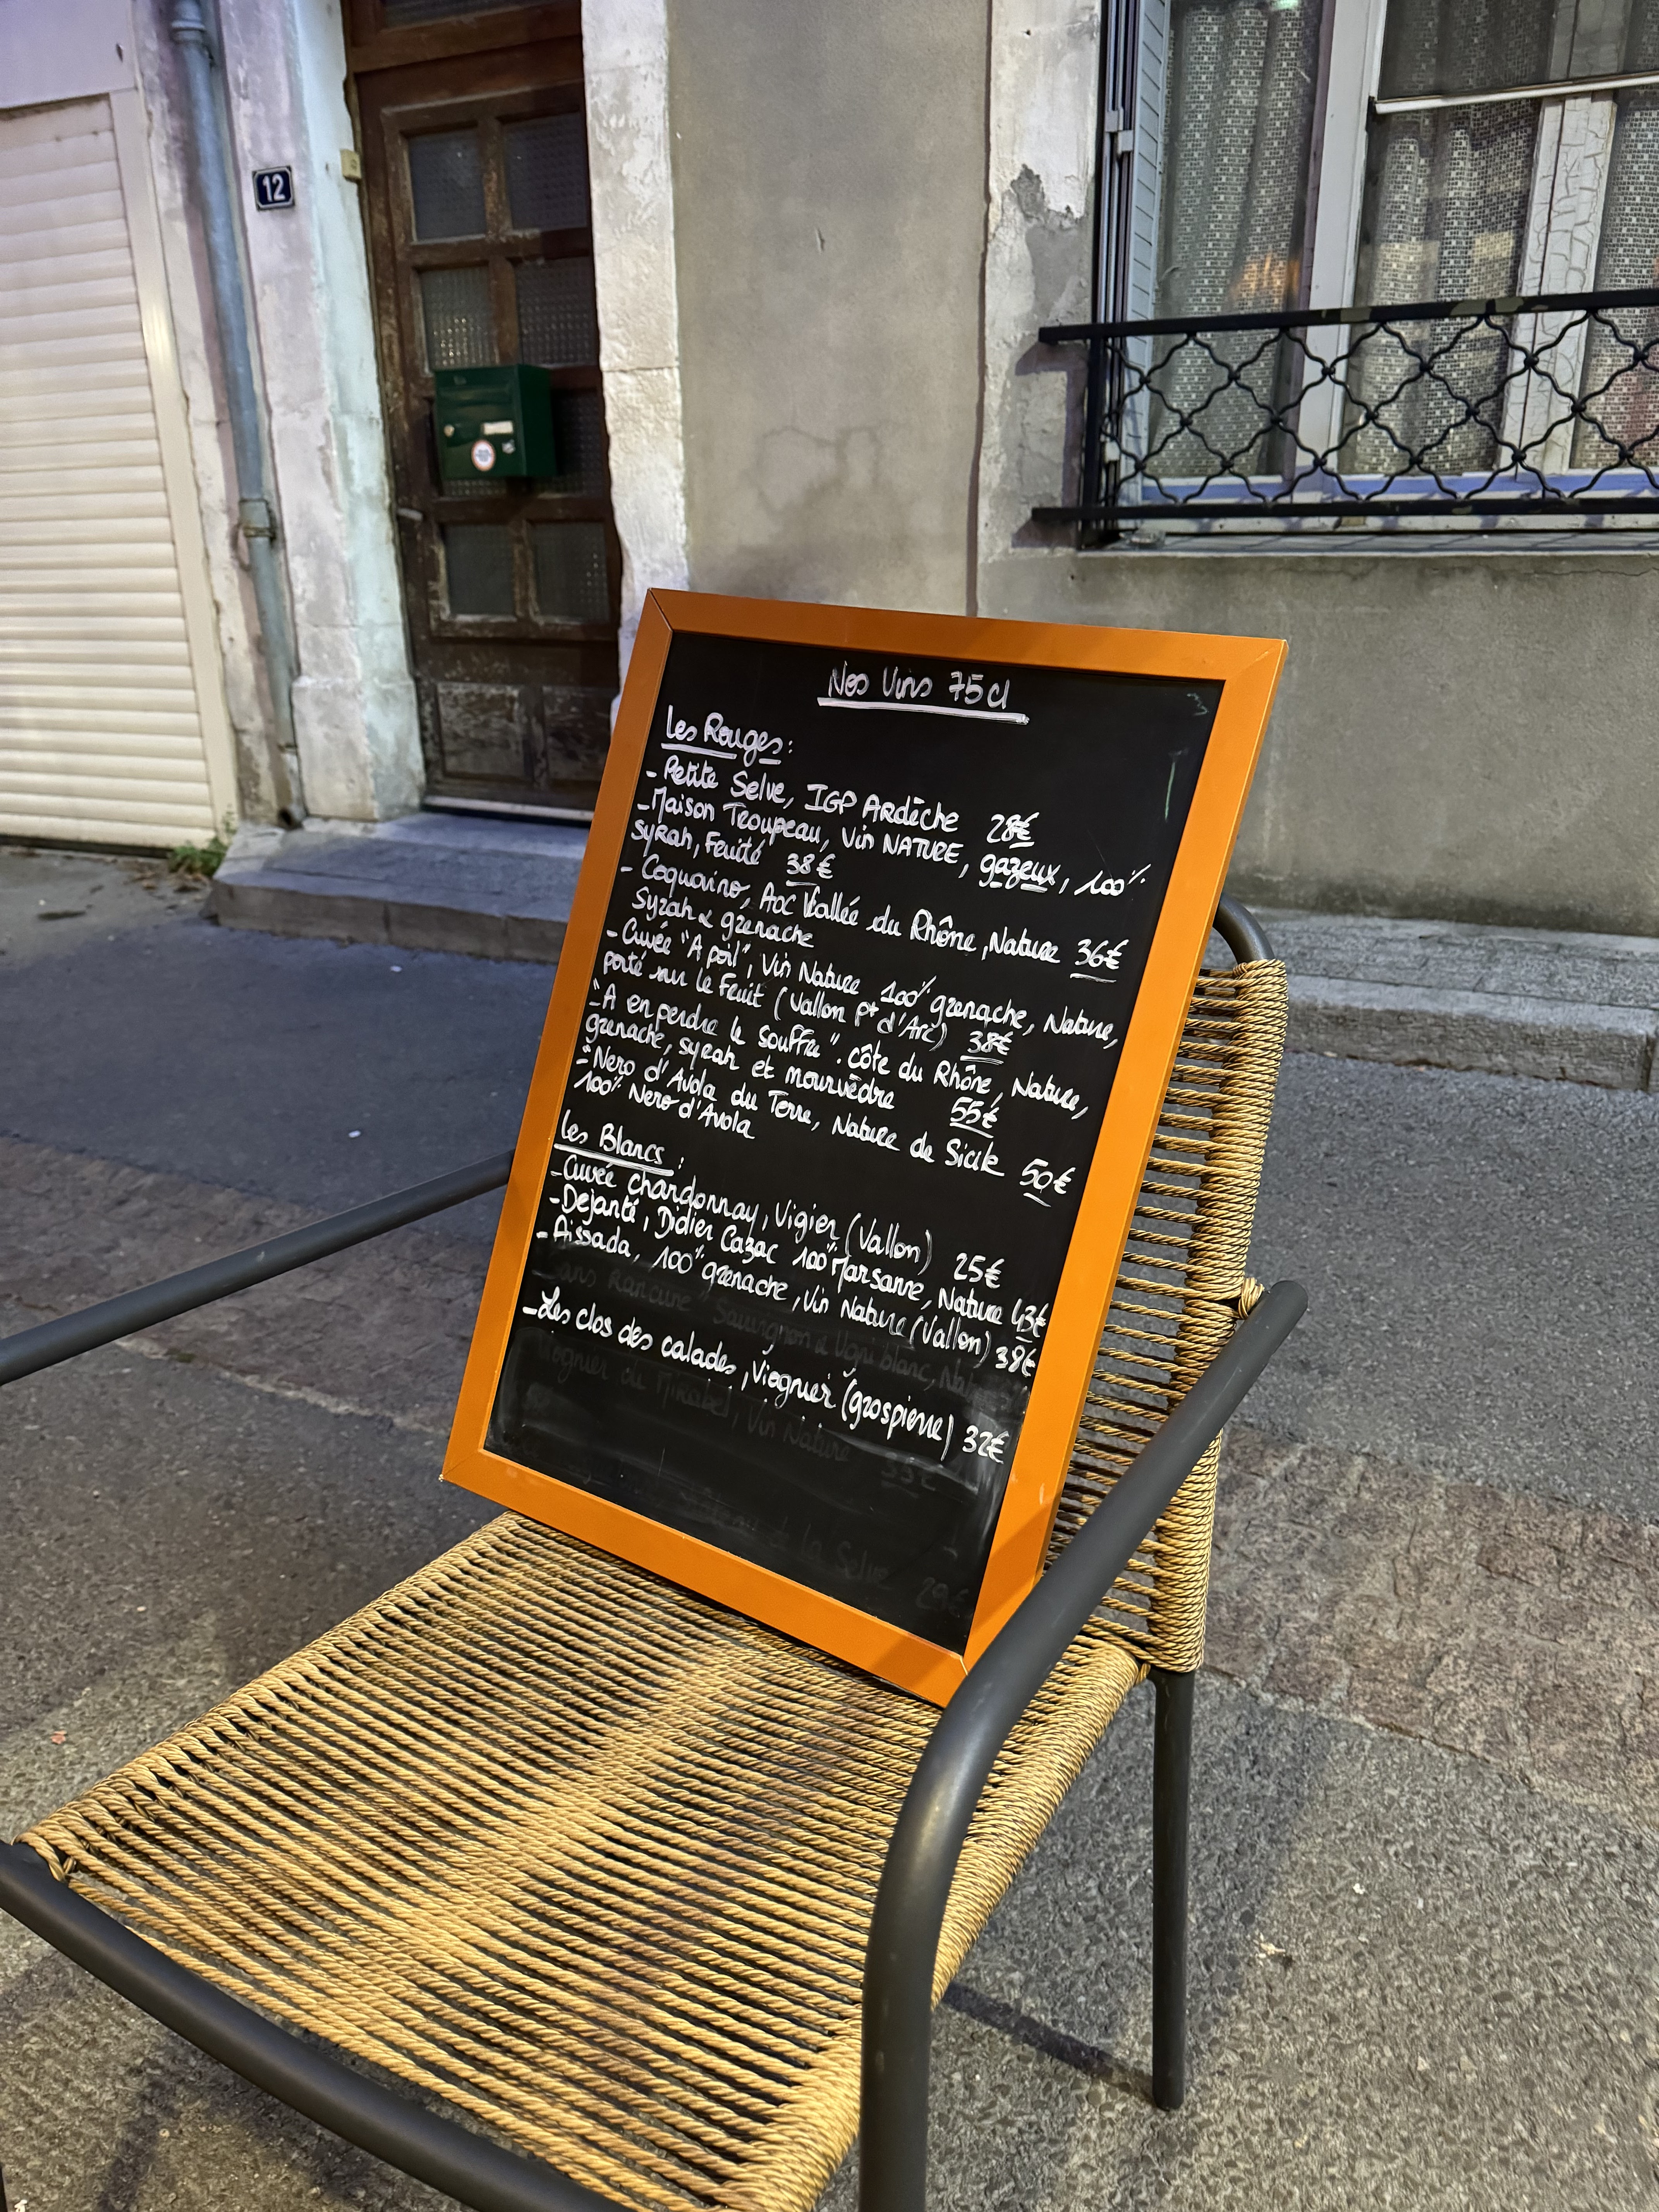 12
Nos Vins 75cl
Les Rouges :
- Petite Selve, IGP Ardèche 28€
- Maison Troupeau, Vin NATURE, gazeux, 100%
Syrah, Fruité 38€
- Coquaino, AOC Vallée du Rhône, Nature 36€
Syrah & grenache
- Cuvée "A poil", Vin Nature 100% grenache, Nature,
porté sur le Fruit (Vallon Pt d'Arc) 38€
- "A en perdre le souffle". côte du Rhône, Nature,
grenache, syrah et mourvèdre 55€
- "Nero d'Avola du Terre, Nature de Sicile 50€
100% Nero d'Avola
Les Blancs :
- Cuvée chardonnay, Vigier (Vallon) 25€
- Dejanté, Didier Cazac 100% Marsanne, Nature 43€
- Aissada, 100% grenache, Vin Nature (Vallon) 38€
Sans Rancune Sauvignon & Ugni blanc,
- Les clos des calades, Viognier (grospierre) 32€
Viognier du Mirabel, Vin Nature 33€
de la Selve 29€